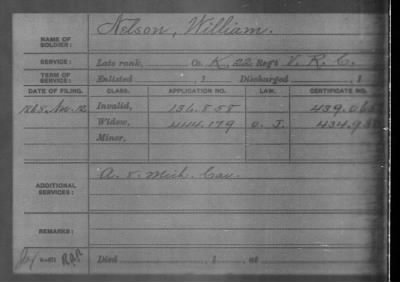 NAME OF SOLDIER: Nelson, William.
SERVICE: Late rank, Co. K, 22 Reg't V. R. C.
TERM OF SERVICE: Enlisted , 1 Discharged , 1
DATE OF FILING. CLASS. APPLICATION NO. LAW. CERTIFICATE NO.
1868, Nov. 12 Invalid, 136.858 439.065
Widow, 444.179 O. J. 434.93
Minor,
ADDITIONAL SERVICES: A. 5. Mich. Cav.
REMARKS:
Died , 1 , at